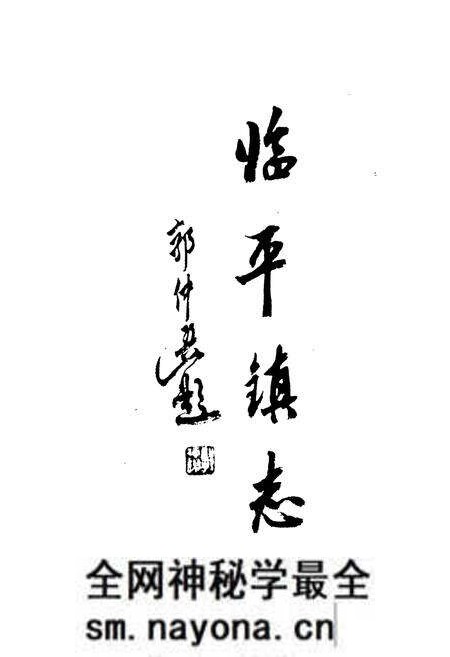 临平镇志
郭仲选题
全网神秘学最全
sm.nayona.cn